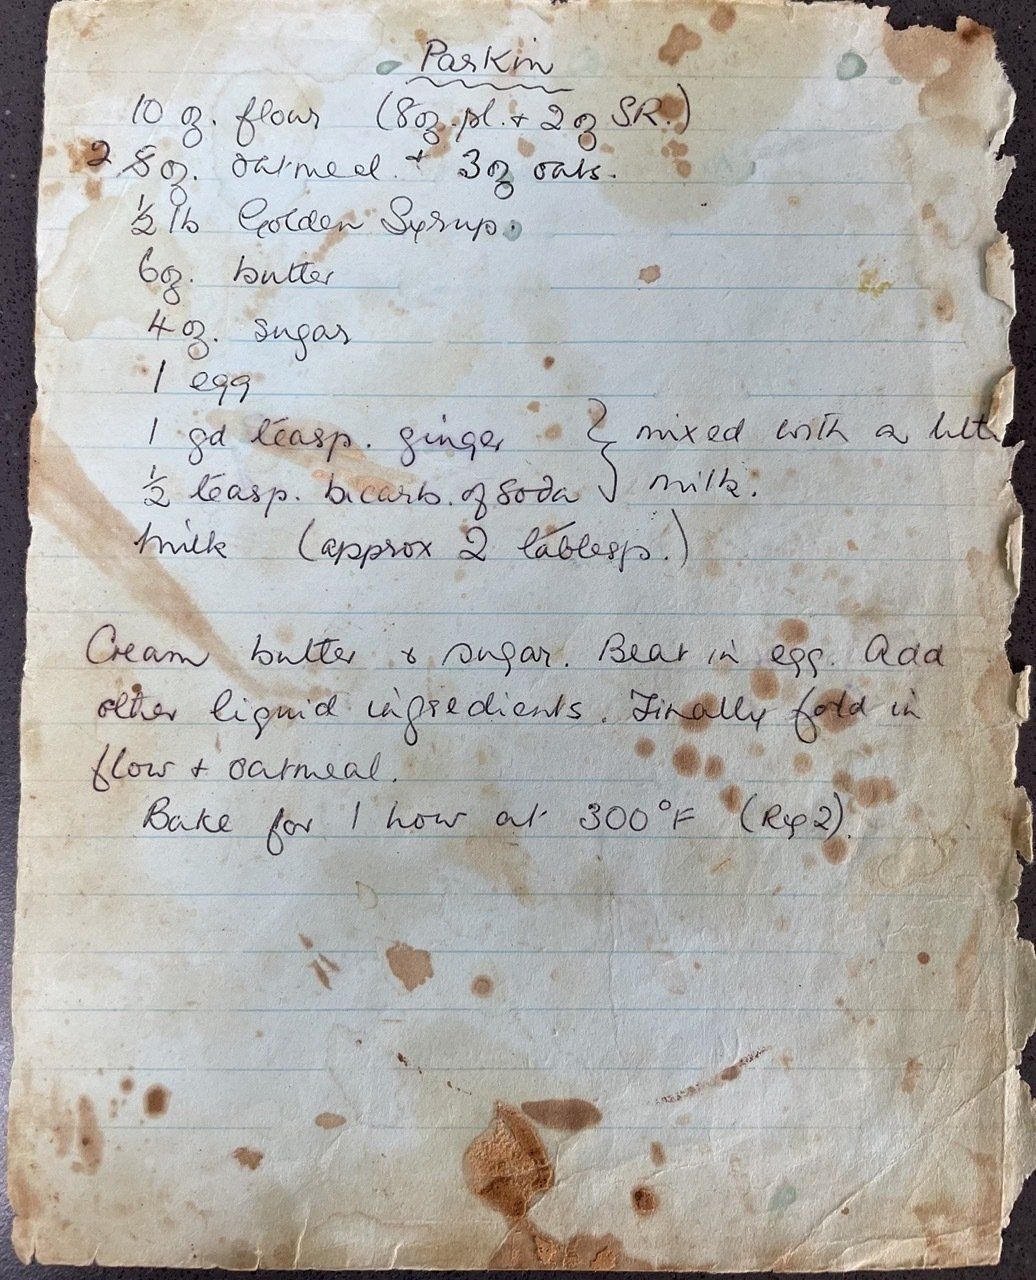 Parkin
10 oz. flour (8oz pl. + 2 oz SR.)
2 8oz. oatmeal. + 3oz oats.
½ lb Golden Syrup.
6oz. butter
4 oz. sugar
1 egg
1 gd teasp. ginger } mixed with a
½ teasp. bicarb. of Soda } milk.
milk (approx 2 tablesp.)
Cream butter & sugar. Beat in egg. Add
other liquid ingredients. Finally fold in
flour + oatmeal.
Bake for 1 hour at 300°F (Rg 2).